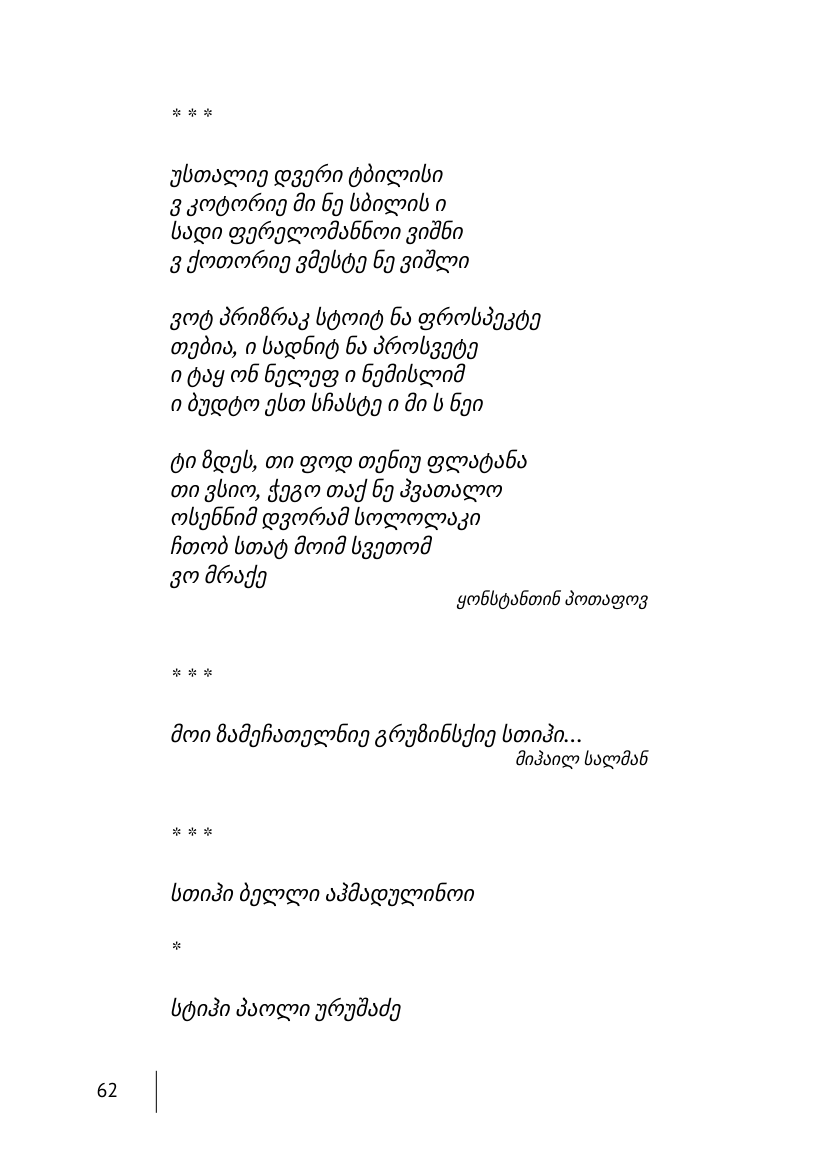 * * *
უსთალიე დვერი ტბილისი
ვ კოტორიე მი ნე სბილის ი
სადი ფერელომაննოი ვიშნი
ვ ქოთორიე ვმესტე ნე ვიშლი
ვოტ პრიზრაკ სტოიტ ნა ფროსპეკტე
თებია, ი სადნიტ ნა პროსვეტე
ი ტაყ ონ ნელეფ ი ნემისლიმ
ი ბუდტო ესთ სჩასტე ი მი ს ნეი
ტი ზდეს, თი ფოდ თენიუ ფლატანა
თი ვსიო, ჭეგო თაქ ნე ჰვათალო
ოსენნიმ დვორამ სოლოლაკი
ჩთობ სთატ მოიმ სვეთომ
ვო მრაქე
ყონსტანთინ პოთაფოვ
* * *
მოი ზამეჩათელნიე გრუზინსქიე სთიჰი...
მიჰაილ სალმან
* * *
სთიჰი ბელლი აჰმადულინოი
*
სტიჰი პაოლი ურუშაძე
62